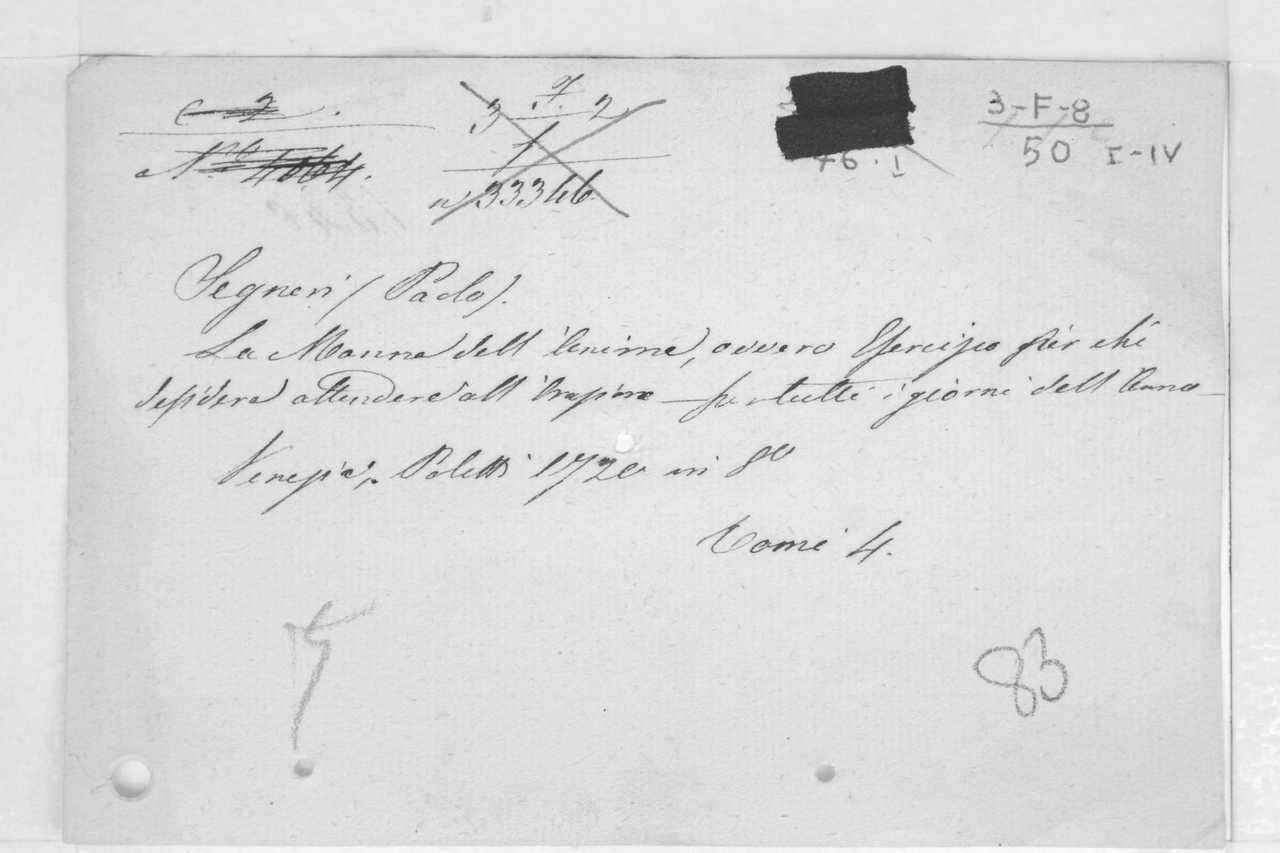 3-F-8
50 I-IV
c 2.
N.ro 4064.
3 7. 2
1
n. 33346
76. I
Segneri (Paolo).
La Manna dell'Anima, ovvero Esercizio per chi
desidera attendere all' per tutti i giorni dell'Anno
Venezia, Poletti 1720 in 8o
Tomi 4.
83